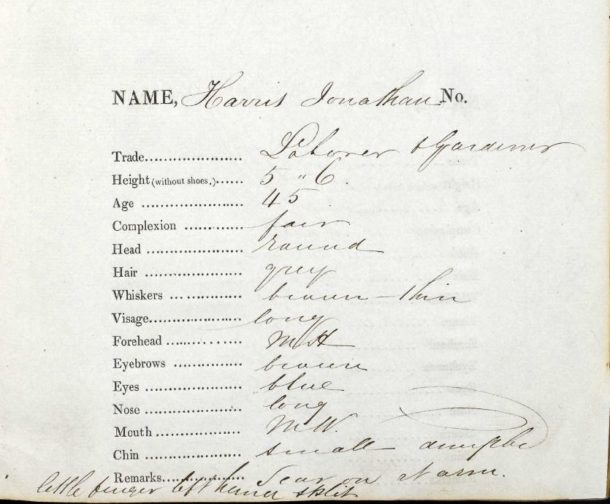 NAME, Harris Jonathan No.
Trade..................... Laborer & Gardener
Height (without shoes.)...... 5 " 6.
Age ..................... 45
Complexion ............. fair
Head ................... round
Hair .................... grey
Whiskers ................ brown - thin
Visage................... long
Forehead ................ M H
Eyebrows ............... brown
Eyes .................... blue
Nose .................... long
Mouth .................. M W.
Chin .................... small dimple
Remarks................. Scar on arm.
little finger left hand split